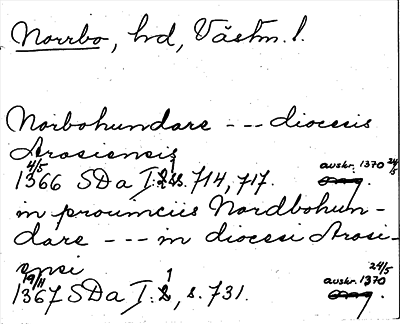 Norrbo, hd, Västm. l.
Norbohundare --- diocesis
Arosiensis
4/5 1366 SDa I:1 ss. 714, 717. avskr. 1370 24/5 orig.
in prouinciis Nordbohun-
dare --- in diocesi Arosi-
ensi
19/11 1367 SDa I:1, s. 731. avskr. 1370 24/5 orig.